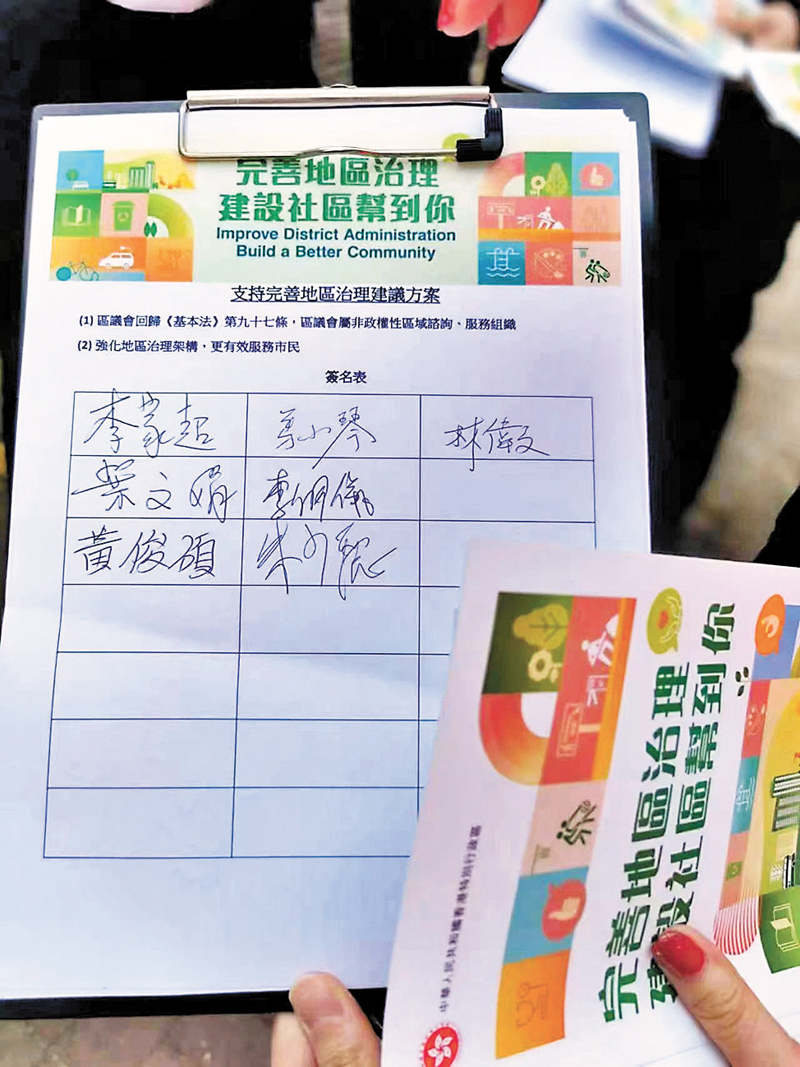 完善地區治理
建設社區幫到你
Improve District Administration
Build a Better Community
支持完善地區治理建議方案
(1) 區議會回歸《基本法》第九十七條，區議會屬非政權性區域諮詢、服務組織
(2) 強化地區治理架構，更有效服務市民
簽名表
李家超
林偉
葉文娟
黃俊碩
完善地區治理
建設社區幫到你
中華人民共和國香港特別行政區